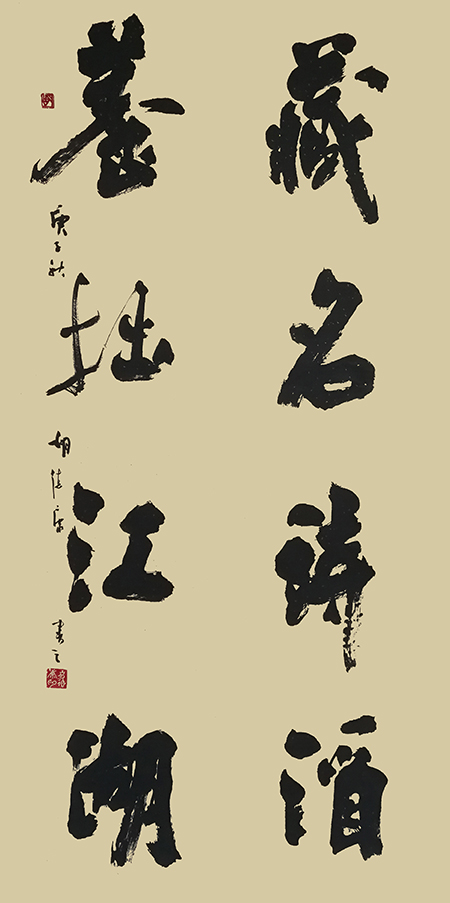 藏名詩酒
養拙江湖
庚子秋 胡 書之